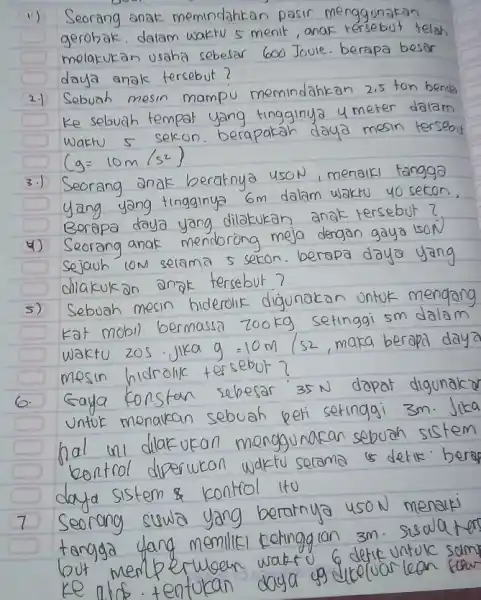 1) Seorang anak memindahkan pasir menggunakan
gerobak, dalam waktu 5 menit, anak tersebut telah
melakukan usaha sebesar 600 Joule. berapa besar
daya anak tersebut?
2.) Sebuah mesin mampu memindahkan 2,5 ton benda
ke sebuah tempat yang tingginya 4 meter dalam
waktu 5 sekon. berapakah daya mesin tersebut
(g= 10m/s2)
3.) Seorang anak beratnya 450N, menaiki tangga
yang yang tingginya 6m dalam waktu 40 sekon.
Berapa daya yang dilakukan anak tersebut?
4) Seorang anak mendorong meja dengan gaya 150N
sejauh 10M selama 5 sekon. berapa daya yang
dilakukan anak tersebut?
5) Sebuah mesin hiderolik digunakan untuk mengang
kat mobil bermassa 700kg setinggi 5m dalam
waktu 20s. jika g =10m/s2, maka berapa daya
mesin hidrolik tersebut?
6. Gaya konstan sebesar 35N dapat digunakan
untuk menaikan sebuah peti setinggi 3m. Jika
hal ini dilakukan menggunakan sebuah sistem
kontrol diperlukan waktu selama 15 detik. berapa
daya sistem & kontrol itu
7 Seorang siswa yang beratnya 450N menaiki
tangga yang memiliki ketinggian 3m. siswa terse
but memperlukan waktu 6 detik untuk samp
ke atas. tentukan daya yg dikeluarkan